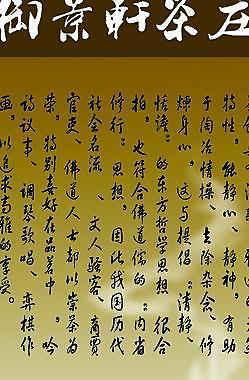 御景軒茶
特性，能静心、静神，有助
于陶冶情操、去除杂念、修
炼身心，这与提倡“清静、
恬澹”的东方哲学思想很合
拍，也符合佛道儒的“内省
修行”思想，因此我国历代
社会名流、文人骚客、商贾
官吏、佛道人士都以崇茶为
荣，特别喜好在品茗中，吟
诗议事、调琴歌唱、弈棋作
画，以追求高雅的享受。